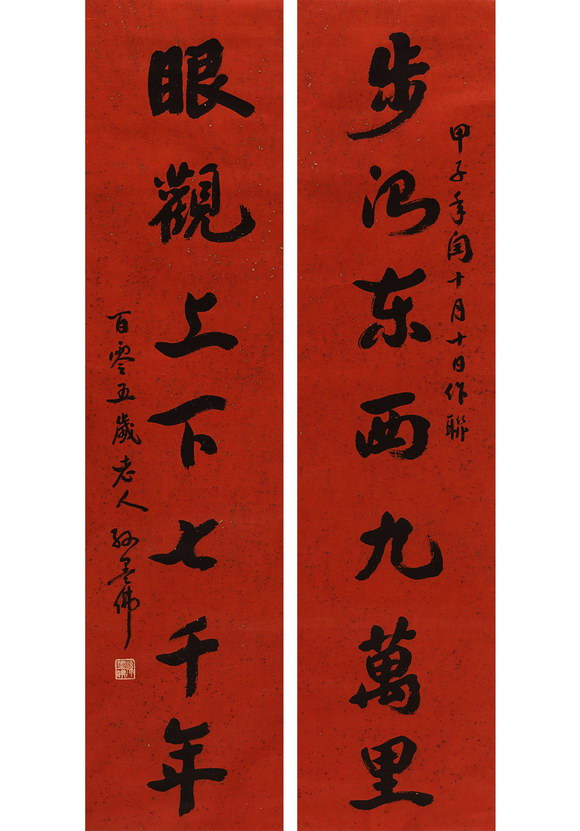 步沿东西九萬里
甲子年闰十月十日作聯
眼觀上下七千年
百零五歲老人孙墨佛